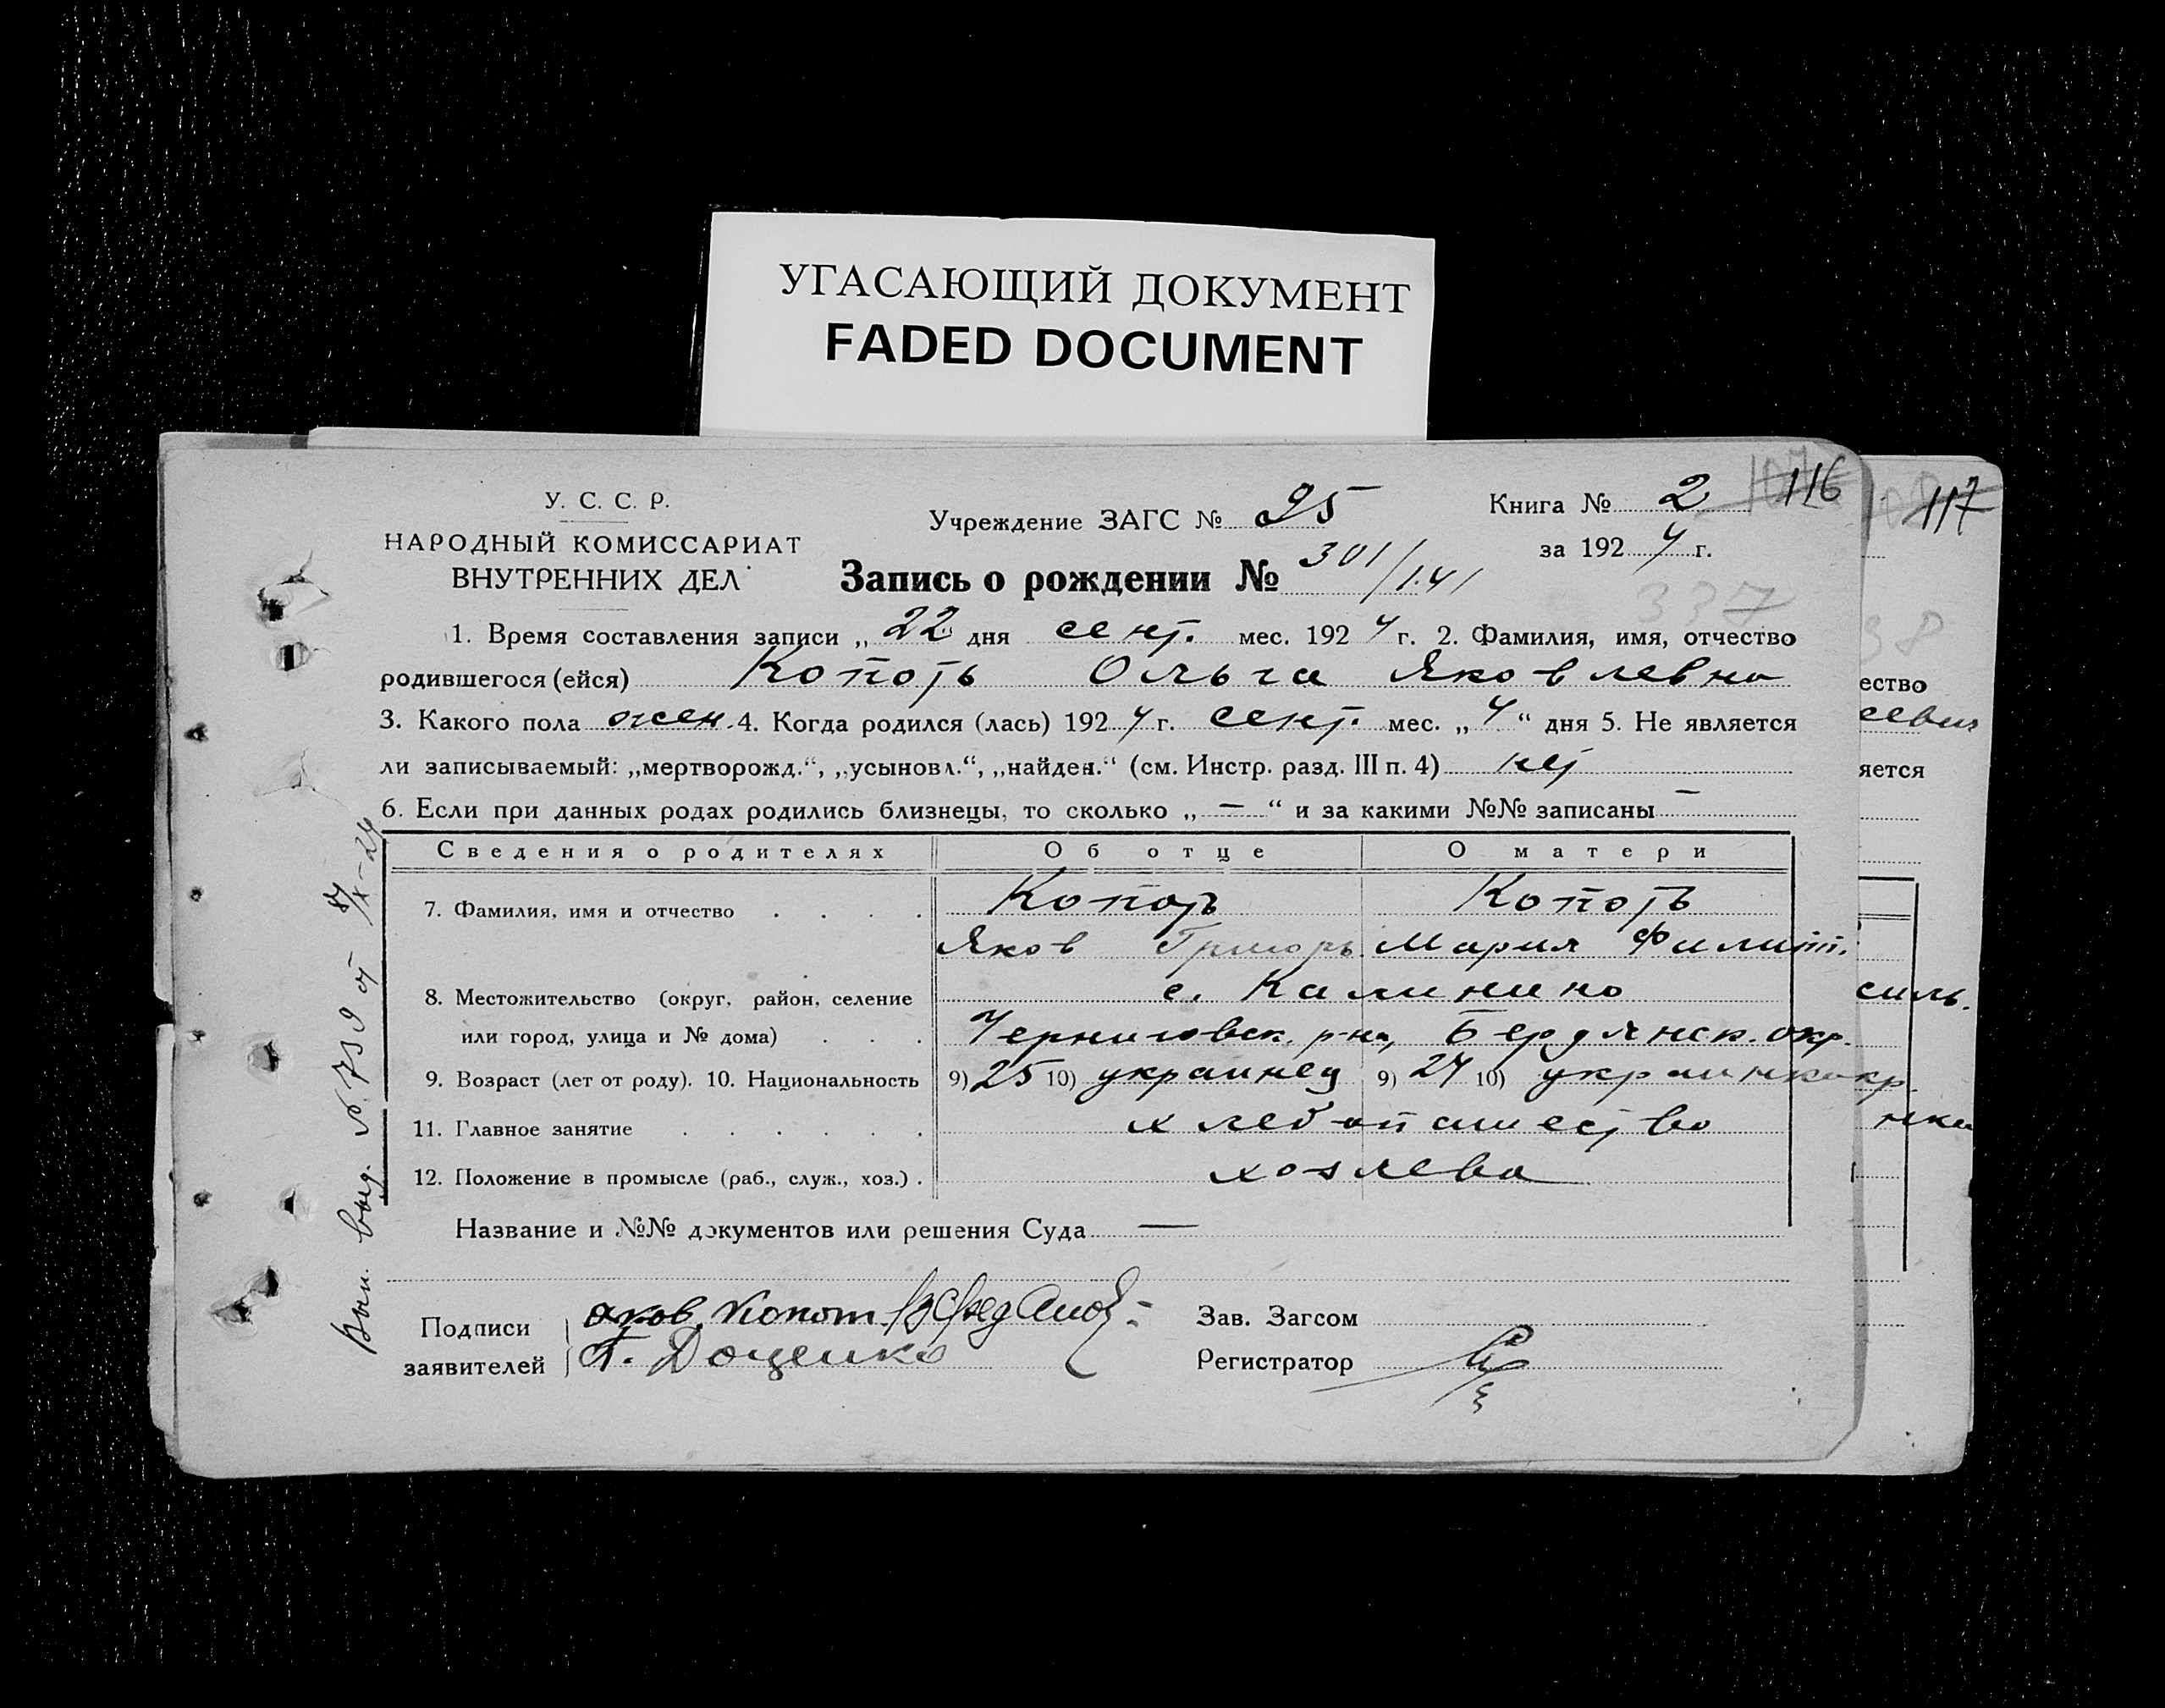 УГАСАЮЩИЙ ДОКУМЕНТ
FADED DOCUMENT
116
117
У. С. С. Р.
НАРОДНЫЙ КОМИССАРИАТ
ВНУТРЕННИХ ДЕЛ
Учреждение ЗАГС № 25
Книга № 2
за 1924 г.
Запись о рождении № 301/141
337
1. Время составления записи „22" дня сент. мес. 1924 г. 2. Фамилия, имя, отчество
родившегося (ейся) Копоть Ольга Яковлевна
3. Какого пола жен. 4. Когда родился (лась) 1924 г. сент. мес. „4" дня 5. Не является
ли записываемый: „мертворожд.", „усыновл.", „найден." (см. Инстр. разд. III п. 4) нет
6. Если при данных родах родились близнецы, то сколько „—" и за какими №№ записаны —
Сведения о родителях Об отце О матери
7. Фамилия, имя и отчество . . . . Копоть Копоть
Яков Григорь. Мария Филип.
8. Местожительство (округ, район, селение с. Калинино
или город, улица и № дома) . . . Черниговск. р-на, Бердянск. окр.
9. Возраст (лет от роду). 10. Национальность 9) 25 10) украинец 9) 24 10) украинка
11. Главное занятие . . . . . . хлебопашество
12. Положение в промысле (раб., служ., хоз.) . хозяева
Название и №№ документов или решения Суда —
Подписи
заявителей
яков Копот
Доценко
Зав. Загсом
Регистратор
Вып. выд. № 739 от
ество
яется
силь.
нка